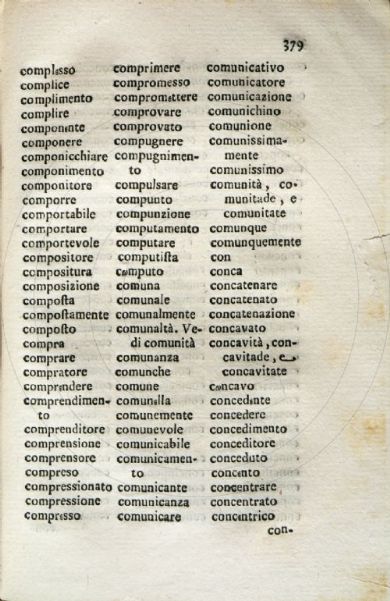 379
complesso
complice
complimento
complire
componente
componere
componicchiare
componimento
componitore
comporre
comportabile
comportare
comportevole
compositore
compositura
composizione
compoſta
compoſtamente
compoſto
compra
comprare
compratore
comprendere
comprendimen-
to
comprenditore
comprensione
comprensore
compreso
compressionato
compressione
compresso
comprimere
compromesso
compromettere
comprovare
comprovato
compugnere
compugnimen-
to
compulsare
compunto
compunzione
computamento
computare
computiſta
computo
comuna
comunale
comunalmente
comunaltà. Ve-
di comunità
comunanza
comunche
comune
comunella
comunemente
comunevole
comunicabile
comunicamen-
to
comunicante
comunicanza
comunicare
comunicativo
comunicatore
comunicazione
comunichino
comunione
comunissima-
mente
comunissimo
comunità, co-
munitade, e
comunitate
comunque
comunquemente
con
conca
concatenare
concatenato
concatenazione
concavato
concavità, con-
cavitade, e
concavitate
concavo
concedente
concedere
concedimento
conceditore
conceduto
concento
concentrare
concentrato
concentrico
con-